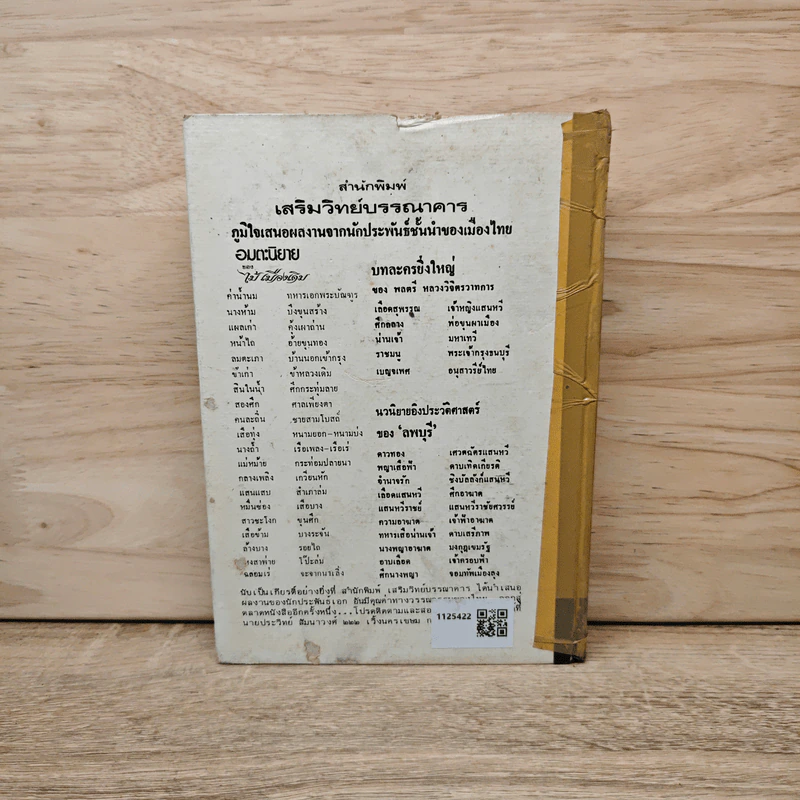 สำนักพิมพ์
เสริมวิทย์บรรณาคาร
ภูมิใจเสนอผลงานจากนักประพันธ์ชั้นนำของเมืองไทย
อมตะนิยาย
ของ
ไม้ เมืองเดิม
ค่าน้ำนม ทหารเอกพระบัณฑูร
นางห้าม บึงขุนสร้าง
แผลเก่า คุ้งเผาถ่าน
หน้าไถ อ้ายขุนทอง
ลมตะเภา บ้านนอกเข้ากรุง
ข้าเก่า ข้าหลวงเดิม
สินในน้ำ ศึกกระทุ่มลาย
สองศึก ศาลเพียงตา
คนละถิ่น ชายสามโบสถ์
เสือทุ่ง หนามยอก-หนามบ่ง
นางถ้ำ เรือเพลง-เรือเร่
แม่หม้าย กระท่อมปลายนา
กลางเพลิง เกวียนหัก
แสนแสบ สำเภาล่ม
หมื่นซ่อง เสือบาง
สาวชะโงก ขุนศึก
เสือข้าม บางระจัน
ล้างบาง รอยไถ
โป๊ะล่ม
บทละครยิ่งใหญ่
ของ พลตรี หลวงวิจิตรวาทการ
เลือดสุพรรณ เจ้าหญิงแสนหวี
ศึกถลาง พ่อขุนผาเมือง
น่านเจ้า มหาเทวี
ราชมนู พระเจ้ากรุงธนบุรี
เบญจเพศ อนุสาวรีย์ไทย
นวนิยายอิงประวัติศาสตร์
ของ 'ลพบุรี'
ดาวทอง เศวตฉัตรแสนหวี
พญาเสือฟ้า ดาบเทิดเกียรติ
อำนาจรัก ชิงบัลลังก์แสนหวี
เลือดแสนหวี ศึกอาฆาต
แสนหวีราชย์ แสนหวีราชัยศวรรย์
ความอาฆาต เจ้าฟ้าอาฆาต
ทหารเสือน่านเจ้า ดาบเสรีภาพ
นางพญาอาฆาต มงกุฎเขมรัฐ
อาบเลือด เจ้าครอบฟ้า
ศึกนางพญา จอมทัพเมืองลุง
นับเป็นเกียรติอย่างยิ่งที่ สำนักพิมพ์ เสริมวิทย์บรรณาคาร ได้นำเสนอ
ผลงานของนักประพันธ์เอก อันมีคุณค่าทางวรรณกรรม
ตลาดหนังสืออีกครั้งหนึ่ง...โปรดติดตามและ
นายประวิทย์ สัมนาวงศ์ ๒๒๒ เวิ้งนครเขษม
1125422